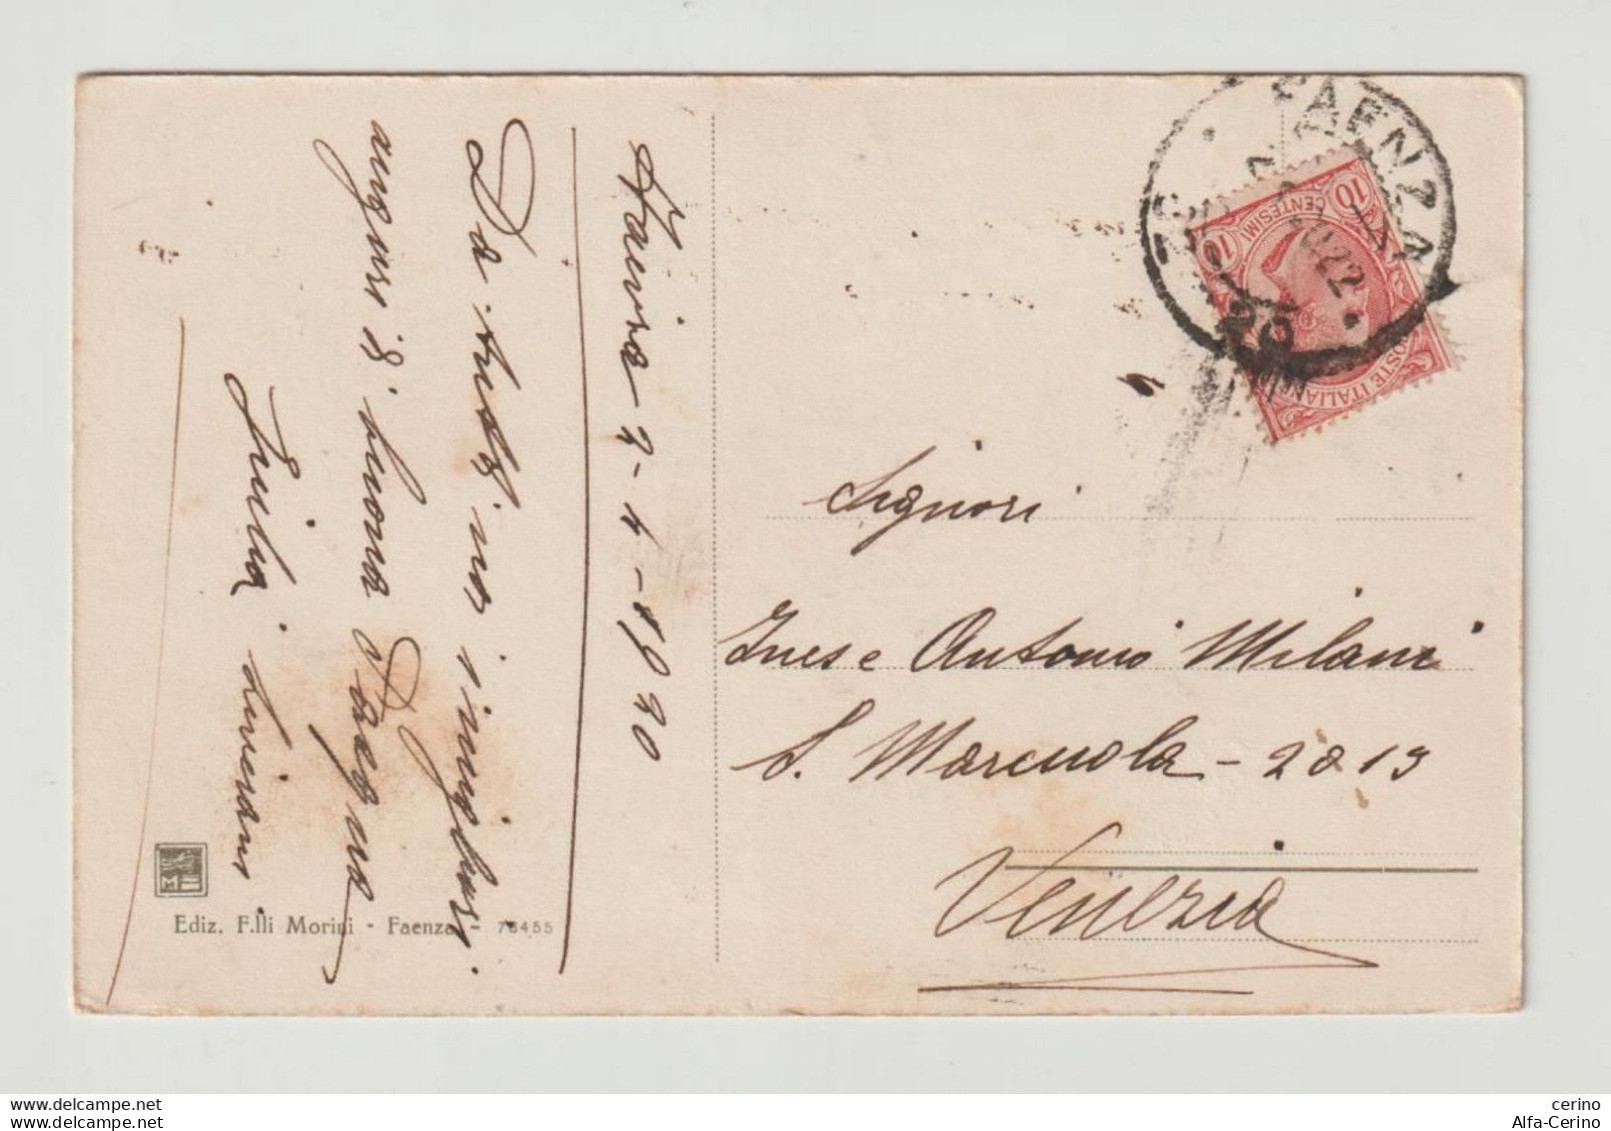 Faenza 7-4-1920
Da tutti noi i migliori
auguri di buona Pasqua
Giulia Liverani
Ediz. F.lli Morini - Faenza - 76455
FAENZA
10
10
CENTESIMI
POSTE ITALIANE
Signori
Ines e Antonio Milani
S. Marcuola - 2013
Venezia
cerino
delcampe.net
Alfa-Cerino
delcampe.net